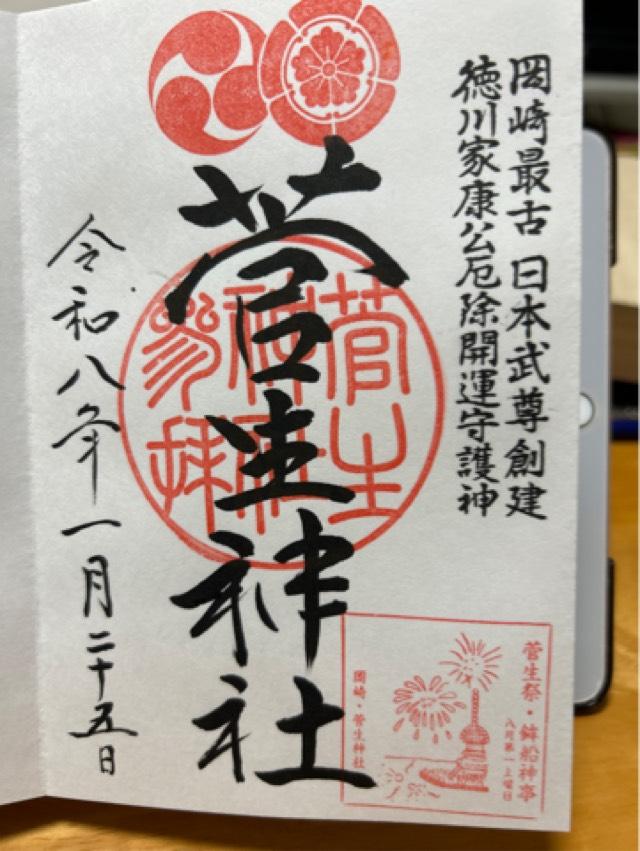 岡崎最古 日本武尊創建
徳川家康公厄除開運守護神
菅生神社
菅生
神社
参拝
令和八年一月二十五日
菅生祭・鉾船神事
八月第一土曜日
岡崎・菅生神社